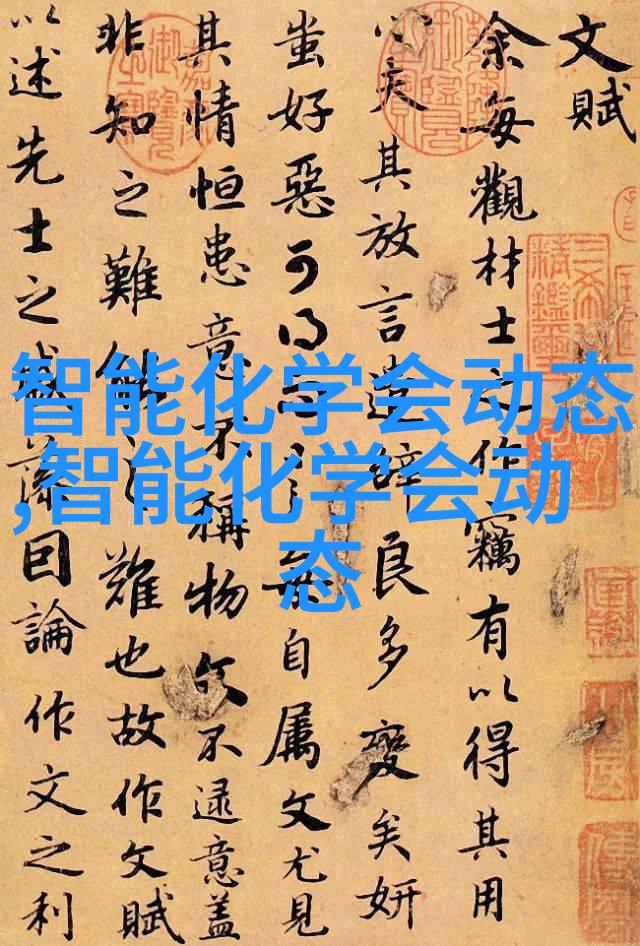 文賦
余每觀材士之作竊有以得其用
心夫其放言遣辭良多變矣妍
蚩好惡可得而言每自屬文尤見
其情恒患意不稱物文不逮意蓋
非知之難能之難也故作文賦
以述先士之盛藻因論作文之利
智能化学会动态
,智能化学会动
态